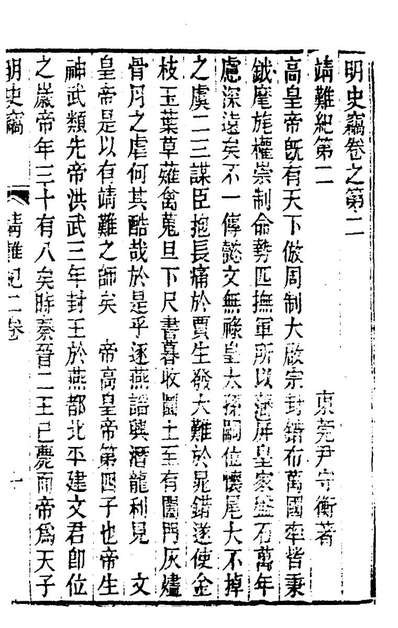 明史竊卷之第二
東莞尹守衡著
靖難紀第二
高皇帝既有天下倣周制大啟宗封錯布萬國率皆秉
鉞麾旄權崇制命勢匹撫軍所以藩屏皇家盤石萬年
慮深遠矣不一傳懿文無祿皇太孫嗣位懷尾大不掉
之虞二三謀臣抱長痛於賈生發大難於晁錯遂使金
枝玉葉草薙禽蒐旦下尺書暮收圜土至有闔門灰燼
骨肉之虐何其酷哉於是乎逐燕謠興潛龍利見 文
皇帝是以有靖難之師矣 帝高皇帝第四子也帝生
神武類先帝洪武三年封王於燕都北平建文君即位
之歲帝年三十有八矣時秦晉二王已薨而帝為天子
明史竊
靖難紀二卷
一